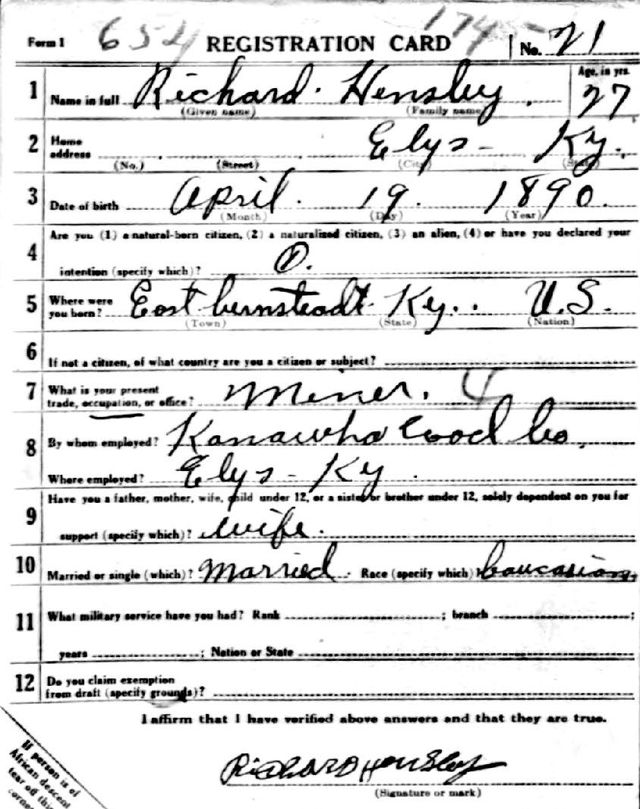 Form 1 654 REGISTRATION CARD 174 No. 21
1 Name in full Richard Hensley Age, in yrs. 27
(Given name) (Family name)
2 Home address Elys - Ky.
(No.) (Street) (City) (State)
3 Date of birth April 19 1890.
(Month) (Day) (Year)
4 Are you (1) a natural-born citizen, (2) a naturalized citizen, (3) an alien, (4) or have you declared your
intention (specify which)? 1.
5 Where were you born? East Bernstadt Ky.. U.S.
(Town) (State) (Nation)
6 If not a citizen, of what country are you a citizen or subject?
7 What is your present trade, occupation, or office? Miner. 4
8 By whom employed? Kanawha Cool Co.
Where employed? Elys - Ky.
9 Have you a father, mother, wife, child under 12, or a sister or brother under 12, solely dependent on you for
support (specify which)? wife.
10 Married or single (which)? Married. Race (specify which) Caucasian
11 What military service have you had? Rank ; branch ;
years ; Nation or State
12 Do you claim exemption from draft (specify grounds)?
I affirm that I have verified above answers and that they are true.
Richard Hensley
(Signature or mark)
If person is of
African descent
tear off this
corner